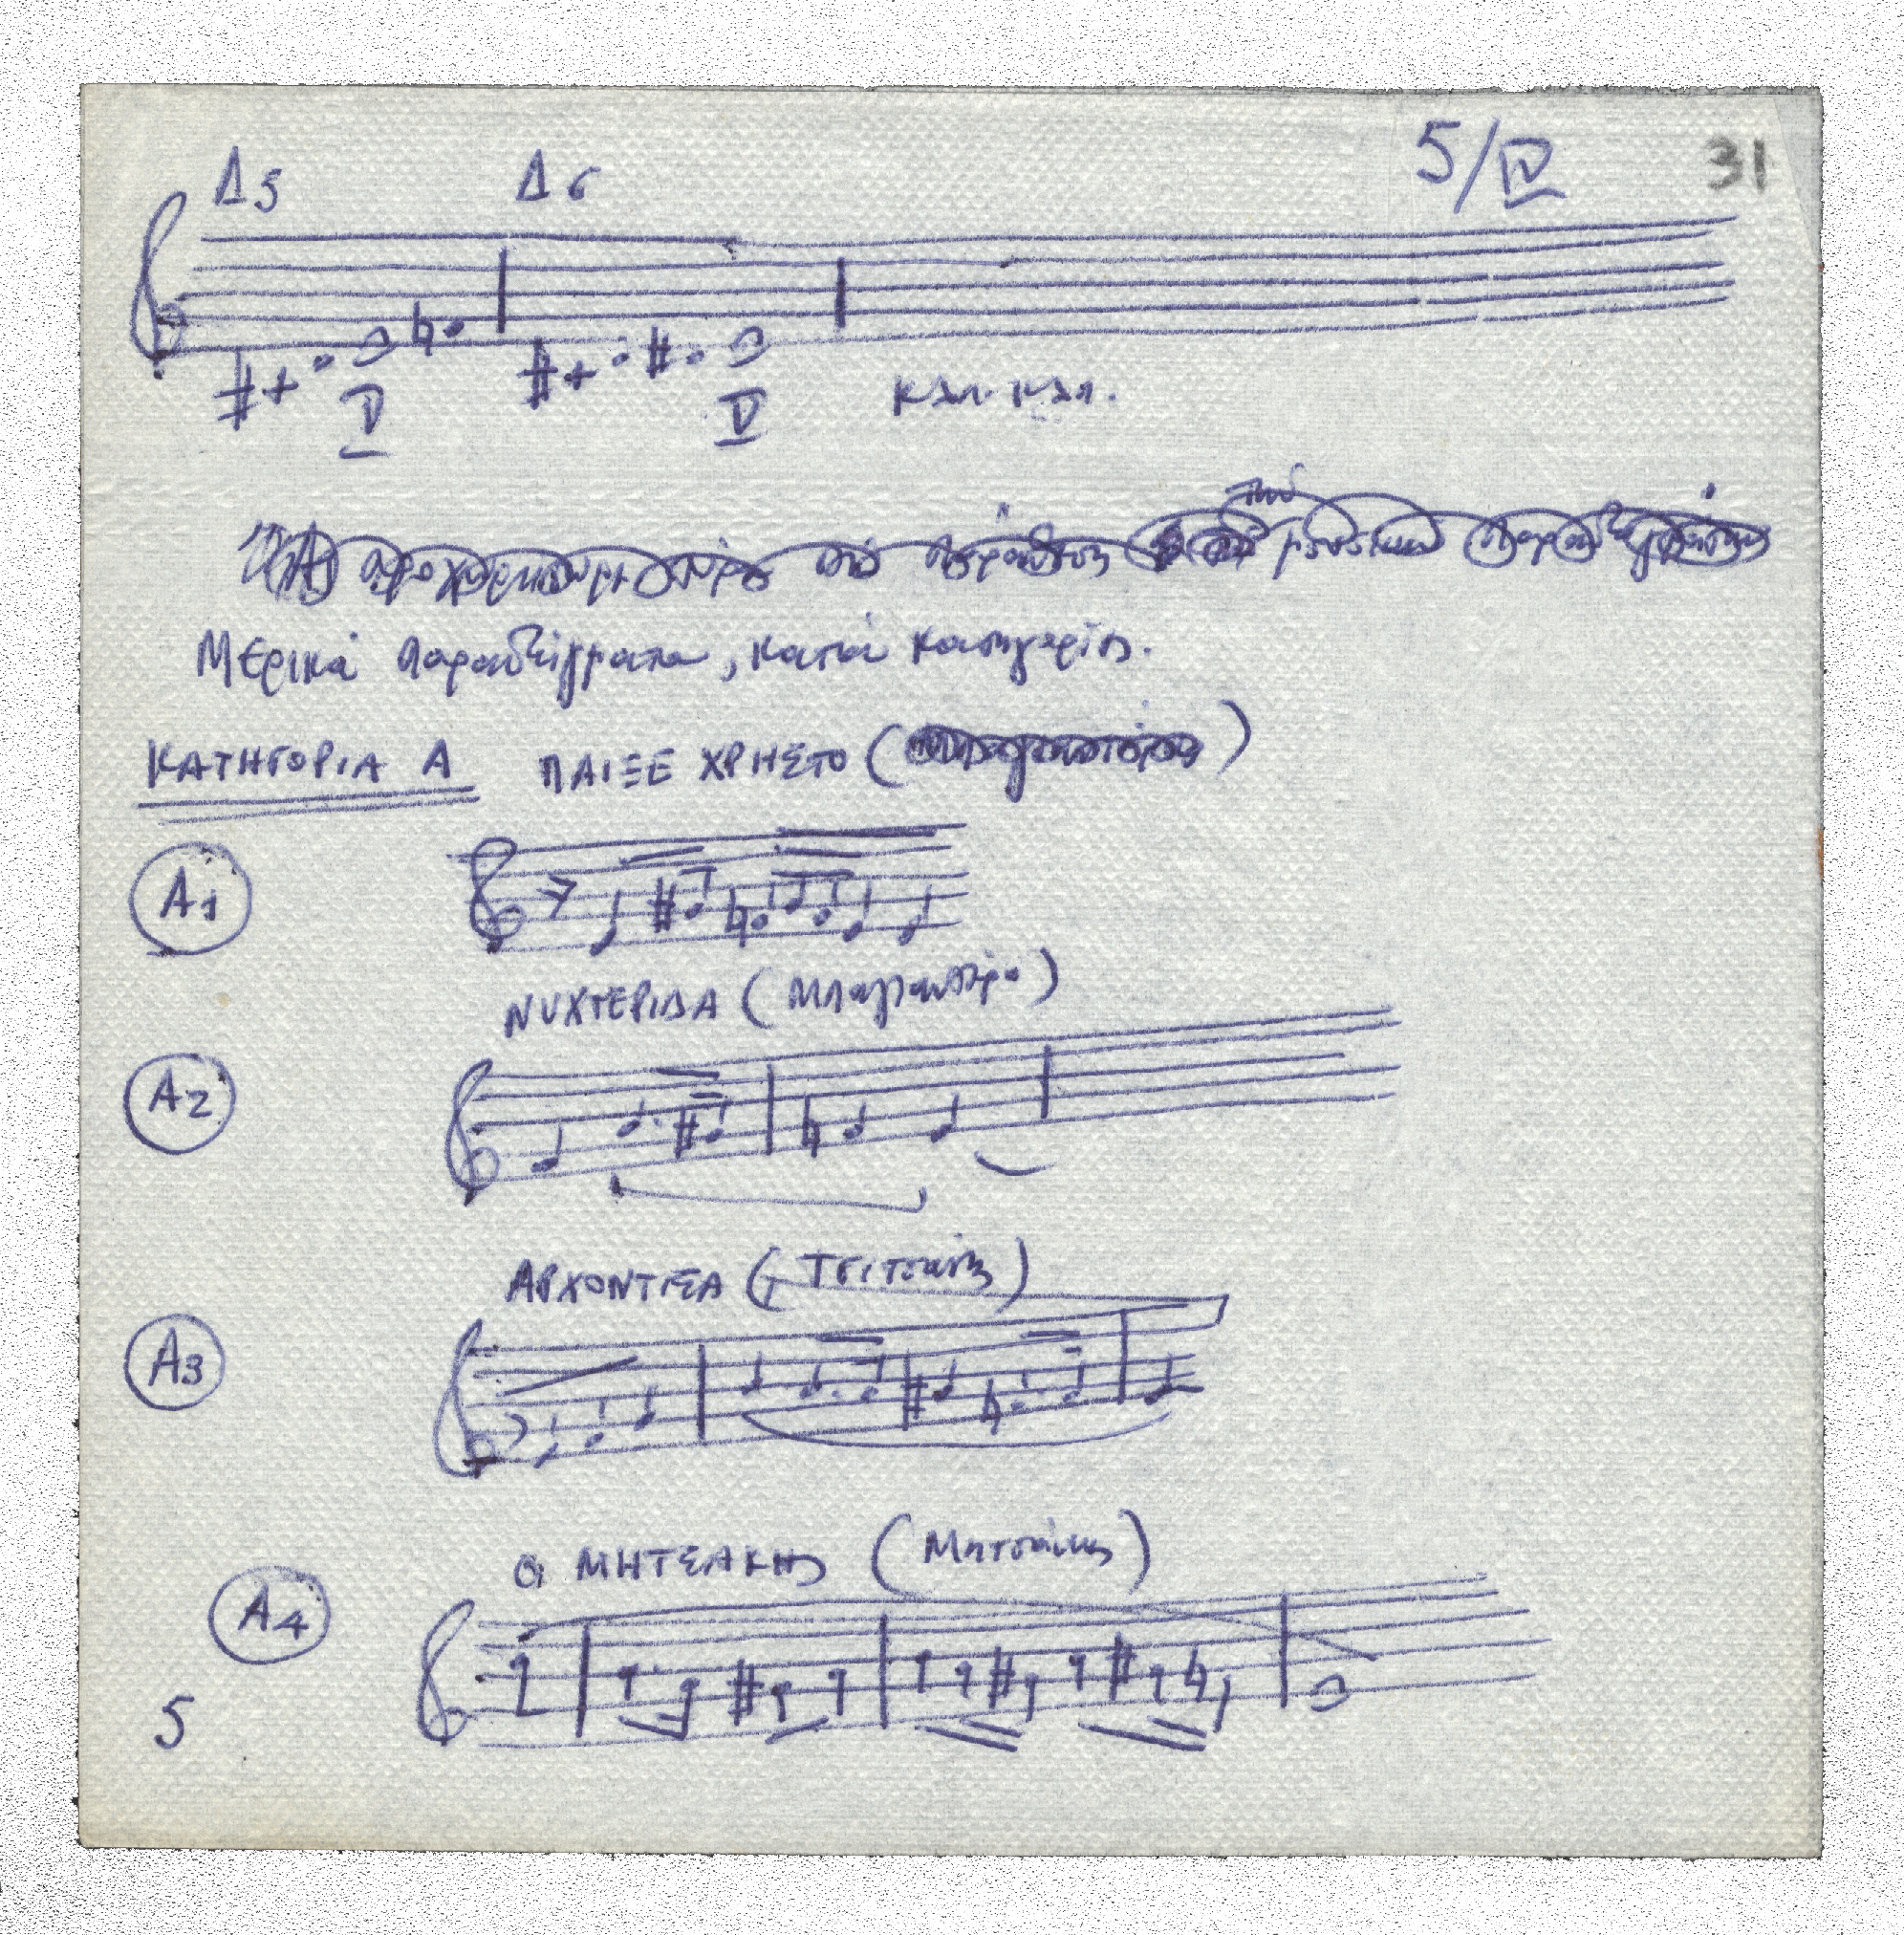 5/IV 31
Δ5 Δ6
V V κλπ. κλπ.
Μερικά παραδείγματα, κατά κατηγορίες.
ΚΑΤΗΓΟΡΙΑ Α ΠΑΙΞΕ ΧΡΗΣΤΟ ( )
Α1
ΝΥΧΤΕΡΙΔΑ (Μπαγιαντέρα)
Α2
ΑΡΧΟΝΤΙΣΑ (Τσιτσάνης)
Α3
Ο ΜΗΤΣΑΚΗΣ (Μητσάκης)
Α4
5